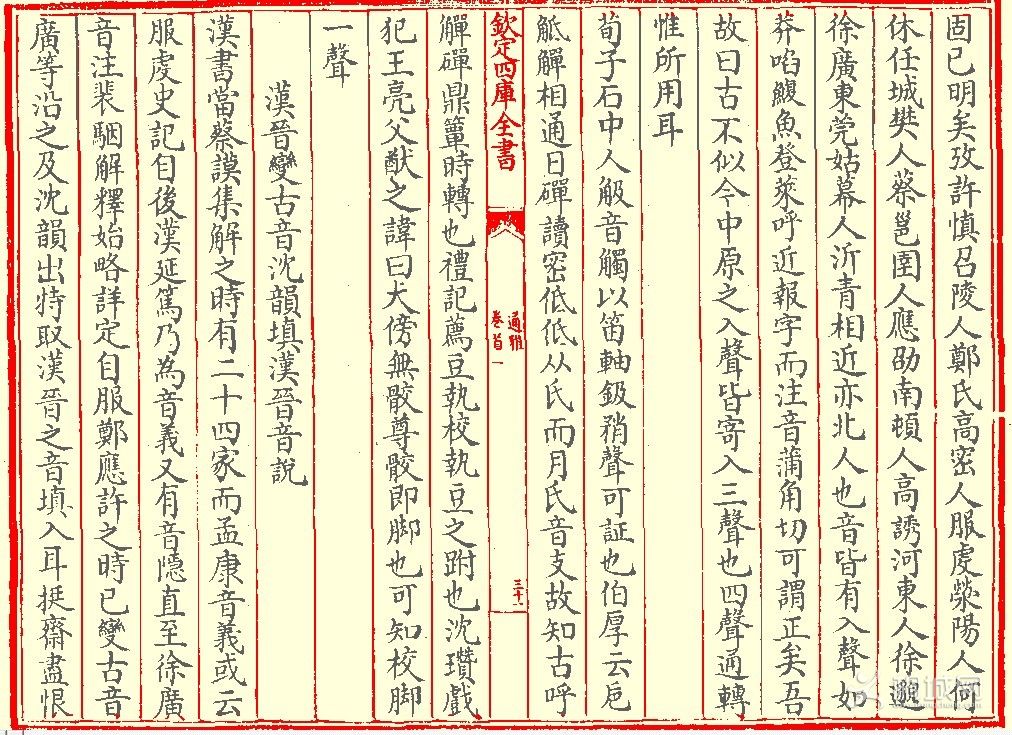 固已明矣攷許慎召陵人鄭氏高密人服虔滎陽人何
休任城樊人蔡邕圉人應劭南頓人高誘河東人徐邈
徐廣東莞姑幕人沂青相近亦北人也音皆有入聲如
莽啗鰒魚登萊呼近報字而注音蒲角切可謂正矣吾
故曰古不似今中原之入聲皆寄入三聲也四聲通轉
惟所用耳
荀子石中人觙音觸以笛軸鈒矟聲可証也伯厚云巵
觝觶相通日磾讀密低低从氐而月氏音支故知古呼
欽定四庫全書
通雅
卷首一
三十一
觶磾鼎簞時轉也禮記薦豆執校執豆之跗也沈瓚戲
犯王亮父猷之諱曰犬傍無骹尊骹即脚也可知校脚
一聲
漢晉變古音沈韻填漢晉音說
漢書當蔡謨集解之時有二十四家而孟康音義或云
服虔史記自後漢延篤乃為音義又有音隱直至徐廣
音注裴駰解釋始略詳定自服鄭應許之時已變古音
廣等沿之及沈韻出特取漢晉之音填入耳挻齋盡恨